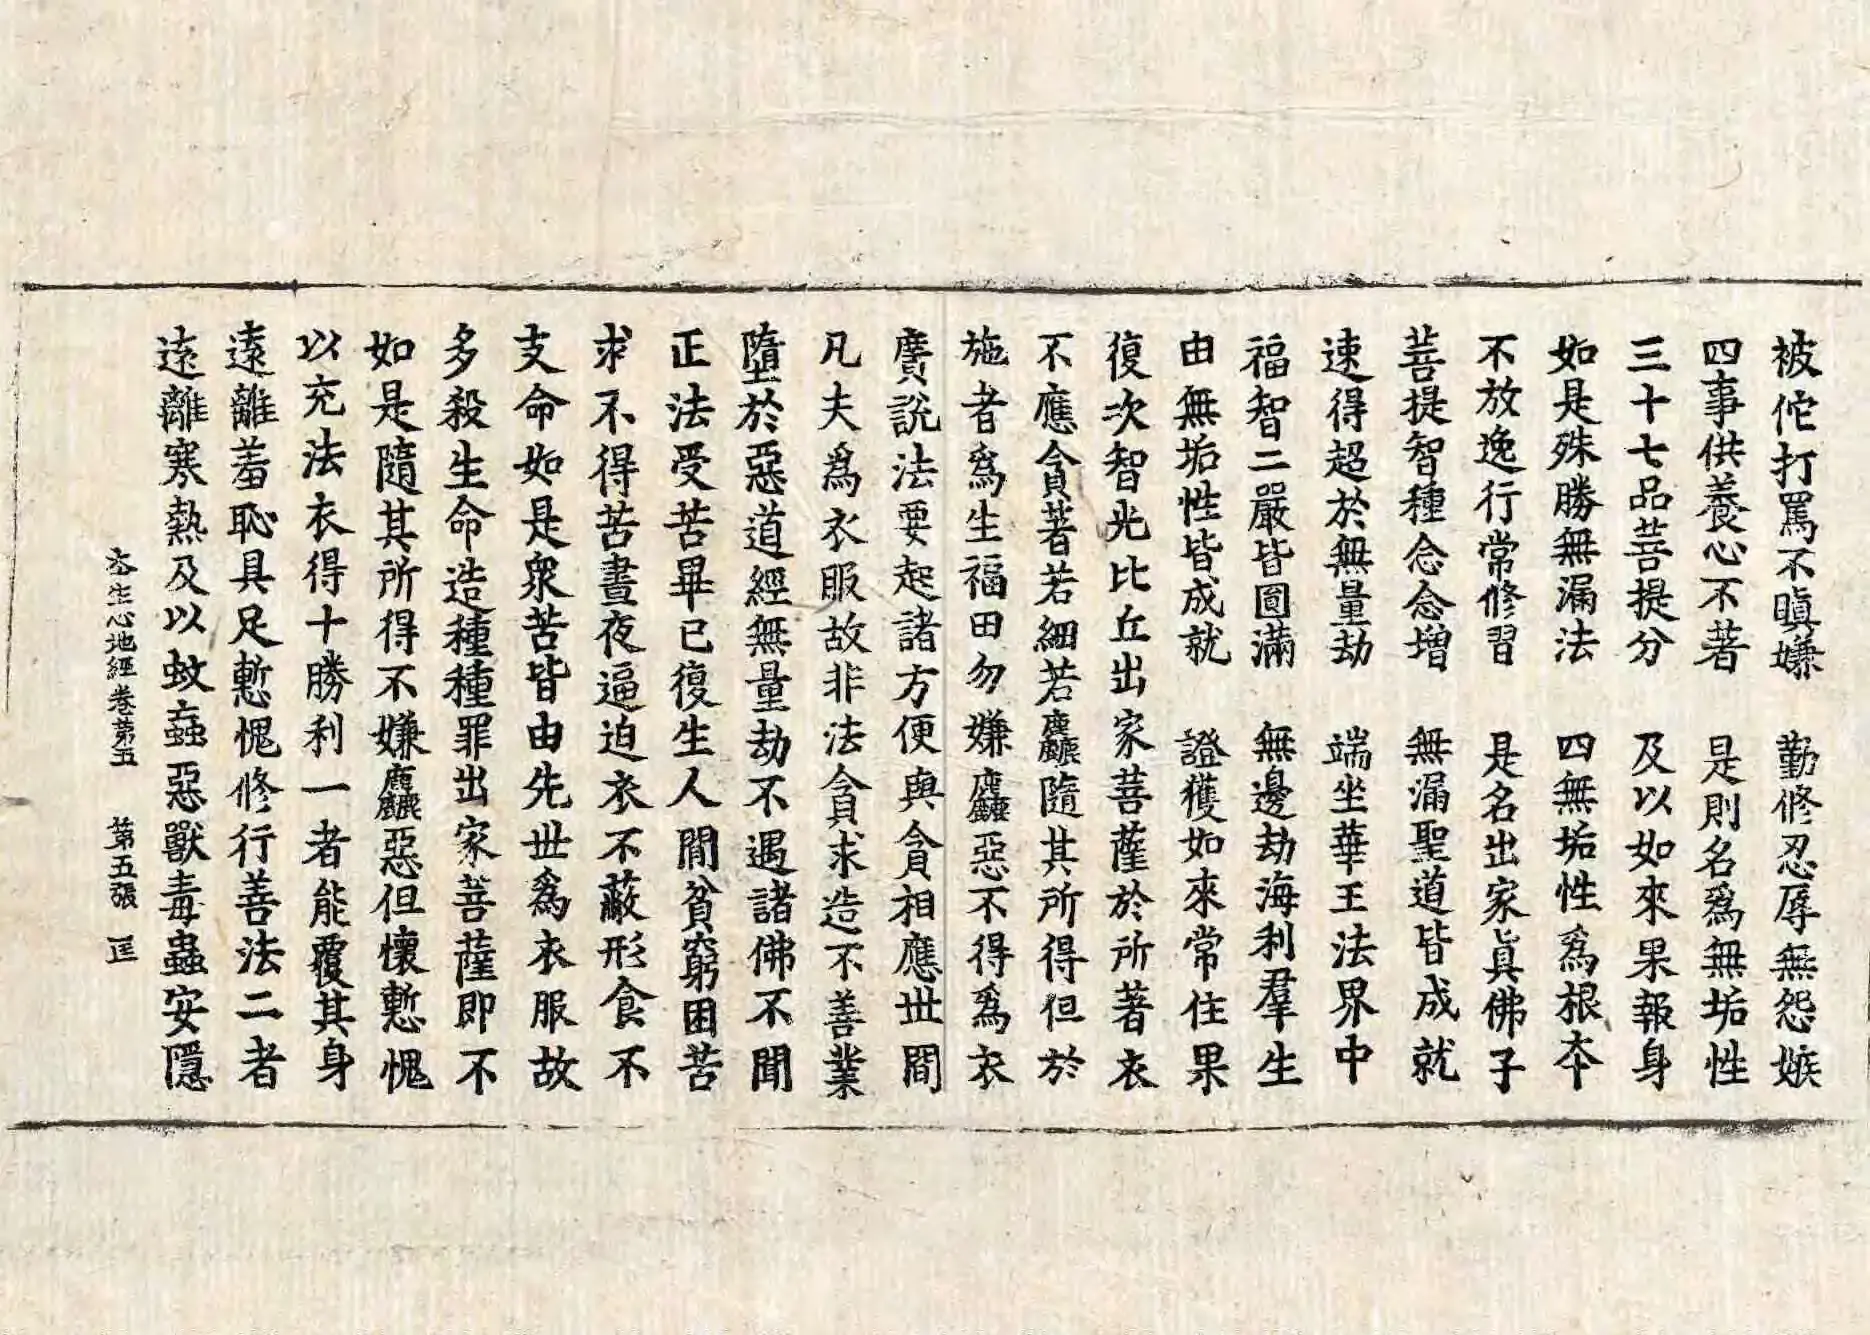 被佗打罵不瞋嫌　勤修忍辱無怨嫉
四事供養心不著　是則名爲無垢性
三十七品菩提分　及以如來果報身
如是殊勝無漏法　四無垢性爲根夲
不放逸行常修習　是名出家眞佛子
菩提智種念念增　無漏聖道皆成就
速得超於無量劫　端坐華王法界中
福智二嚴皆圎滿　無邊劫海利羣生
由無垢性皆成就　證獲如來常住果
復次智光比丘出家菩薩於所著衣
不應貪著若細若麤隨其所得但於
施者爲生福田勿嫌麤惡不得爲衣
廣說法要起諸方便與貪相應世間
凡夫爲衣服故非法貪求造不善業
墮於惡道經無量劫不遇諸佛不聞
正法受苦畢已復生人間貧窮困苦
求不得苦晝夜逼迫衣不蔽形食不
支命如是衆苦皆由先世爲衣服故
多殺生命造種種罪出家菩薩即不
如是隨其所得不嫌麤惡但懷慙愧
以充法衣得十勝利一者能覆其身
遠離羞恥具足慙愧修行善法二者
遠離寒熱及以蚊蝱惡獸毒蟲安隱
夲生心地經卷第五　第五張　匡